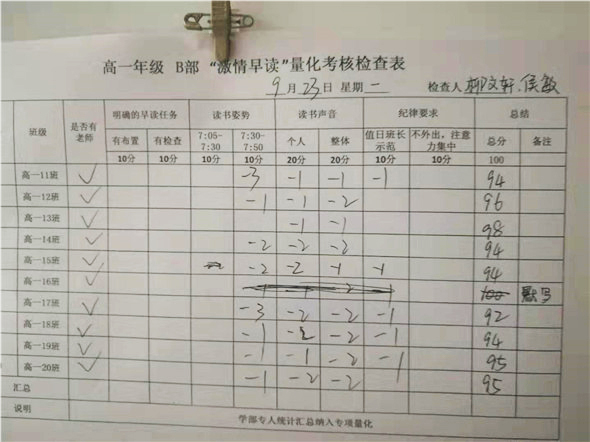 高一年级 B部 “激情早读”量化考核检查表
9月23日 星期一 检查人 柳文轩.侯敏
班级 是否有老师 明确的早读任务 读书姿势 读书声音 纪律要求 总结
有布置 有检查 7:05-7:30 7:30-7:50 个人 整体 值日班长示范 不外出，注意力集中 总分 备注
10分 10分 10分 10分 20分 20分 10分 10分 100
高一11班 ✓ -3 -1 -1 -1 94
高一12班 ✓ -1 -1 -2 96
高一13班 ✓ -1 -1 98
高一14班 ✓ -2 -2 -2 94
高一15班 ✓ -2 -2 -1 -1 94
高一16班 ✓ 默写
高一17班 ✓ -3 -2 -2 -1 92
高一18班 ✓ -1 -2 -2 -1 94
高一19班 ✓ -1 -1 -2 -1 95
高一20班 ✓ -1 -2 -2 95
汇总
说明 学部专人统计汇总纳入专项量化